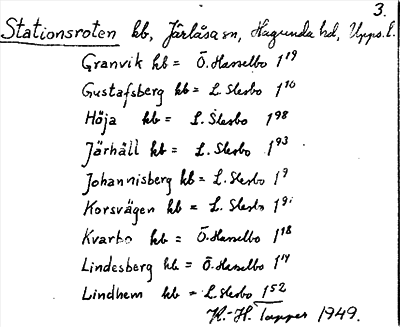 3.
Stationsroten kb, Järlåsa sn, Hagunda hd, Upps. l.
Granvik kb = Ö. Hasselbo 1¹⁹
Gustafsberg kb = L. Slesbo 1¹⁰
Höja kb = L. Slesbo 1⁹⁸
Järhäll kb = L. Slesbo 1⁹³
Johannisberg kb = L. Slesbo 1⁹
Korsvägen kb = L. Slesbo
Kvarbo kb = Ö. Hasselbo 1¹⁸
Lindesberg kb = Ö. Hasselbo
Lindhem kb = L. Slesbo 1⁵²
K.-H. Tapper 1949.